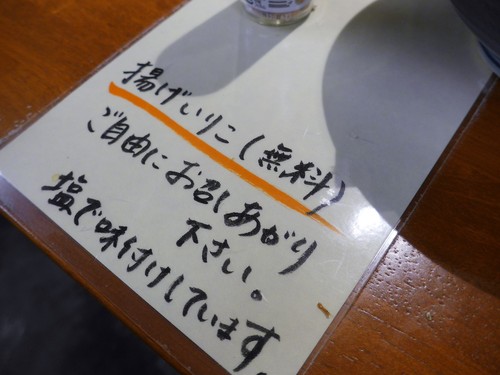 揚げいりこ(無料)
ご自由にお召しあがり
下さい。
塩で味付けしています。